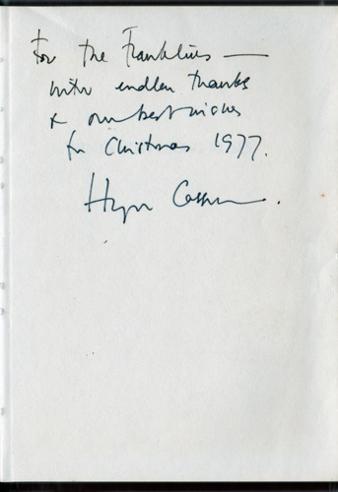 For the Franklins —
with endless thanks
& our best wishes
for Christmas 1977.